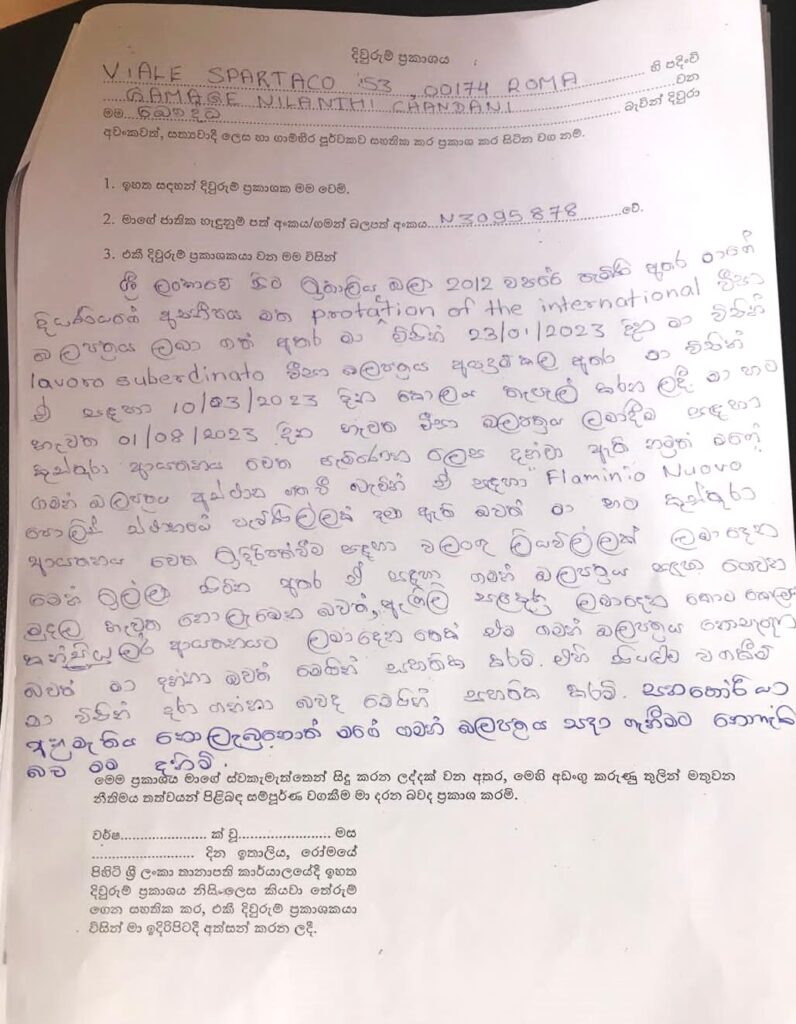 දිවුරුම් ප්‍රකාශය
VIALE SPARTACO 153, 00174 ROMA හි පදිංචි
GAMAGE NILANTHI CHANDANI වන
මම බෞද්ධ බැවින් දිවුරා
අවංකවත්, සත්‍යවාදී ලෙස හා ගාම්භීර පූර්වකව සහතික කර ප්‍රකාශ කර සිටින වග නම්.
1. ඉහත සඳහන් දිවුරුම් ප්‍රකාශක මම වෙමි.
2. මාගේ ජාතික හැඳුනුම් පත් අංකය/ගමන් බලපත් අංකය N3095878 වේ.
3. එකී දිවුරුම් ප්‍රකාශකයා වන මම විසින්
ශ්‍රී ලංකාවේ සිට ඉතාලිය බලා 2012 වසරේ පැමිණි අතර මාගේ
දියණියගේ අසනීපය මත protation of the international වීසා
බලපත්‍රය ලබා ගත් අතර මා විසින් 23/01/2023 දින මා විසින්
lavoro suberdinato වීසා බලපත්‍රය අයදුම් කල අතර මා විසින්
ඒ සඳහා 10/03/2023 දින කොලය තැපැල් කරන ලදී. මා හට
නැවත 01/08/2023 දින නැවත වීසා බලපත්‍රය ලබාදීම සඳහා
කුස්තුරා ආයතනය වෙත පැමිණෙන ලෙස දන්වා ඇති නමුත් මගේ
ගමන් බලපත්‍රය අස්ථාන ගත වී බැවින් ඒ සඳහා "Flaminio Nuovo
පොලිස් ස්ථානයේ පැමිණිල්ලක් දමා ඇති බවත් මා හට කුස්තුරා
ආයතනය වෙත ඉදිරිපත්වීම සඳහා වලංගු ලියවිල්ලක් ලබාදෙන
මෙන් ඉල්ලා සිටින අතර ඒ සඳහා ගමන් බලපත්‍රය සඳහා ගෙවන
මුදල නැවත නොලැබෙන බවත්, ඇඟිලි සලකුණු ලබාදෙන කොට
කන්සියුලර් ආයතනයට ලබාදෙන තෙක් එම ගමන් බලපත්‍රය
බවත් මා දන්නා බවත් මෙයින් සහතික කරමි. එහි සියළුම වගකීම්
මා විසින් දරා ගන්නා බවද මෙයින් සහතික කරමි.
අනුමැතිය නොලැබුනහොත් මගේ ගමන් බලපත්‍රය සදා ගැනීමට නොහැකි
බව මම දනිමි.
මෙම ප්‍රකාශය මාගේ ස්වකැමැත්තෙන් සිදු කරන ලද්දක් වන අතර, මෙහි අඩංගු කරුණු තුලින් මතුවන
නීතිමය තත්වයන් පිළිබඳ සම්පූර්ණ වගකීම මා දරන බවද ප්‍රකාශ කරමි.
වර්ෂ...................... ක් වූ....................... මස
......................... දින ඉතාලිය, රෝමයේ
පිහිටි ශ්‍රී ලංකා තානාපති කාර්යාලයේදී ඉහත
දිවුරුම් ප්‍රකාශය නිසිලෙස කියවා තේරුම්
ගෙන සහතික කර, එකී දිවුරුම් ප්‍රකාශකයා
විසින් මා ඉදිරිපිටදී අත්සන් කරන ලදී.